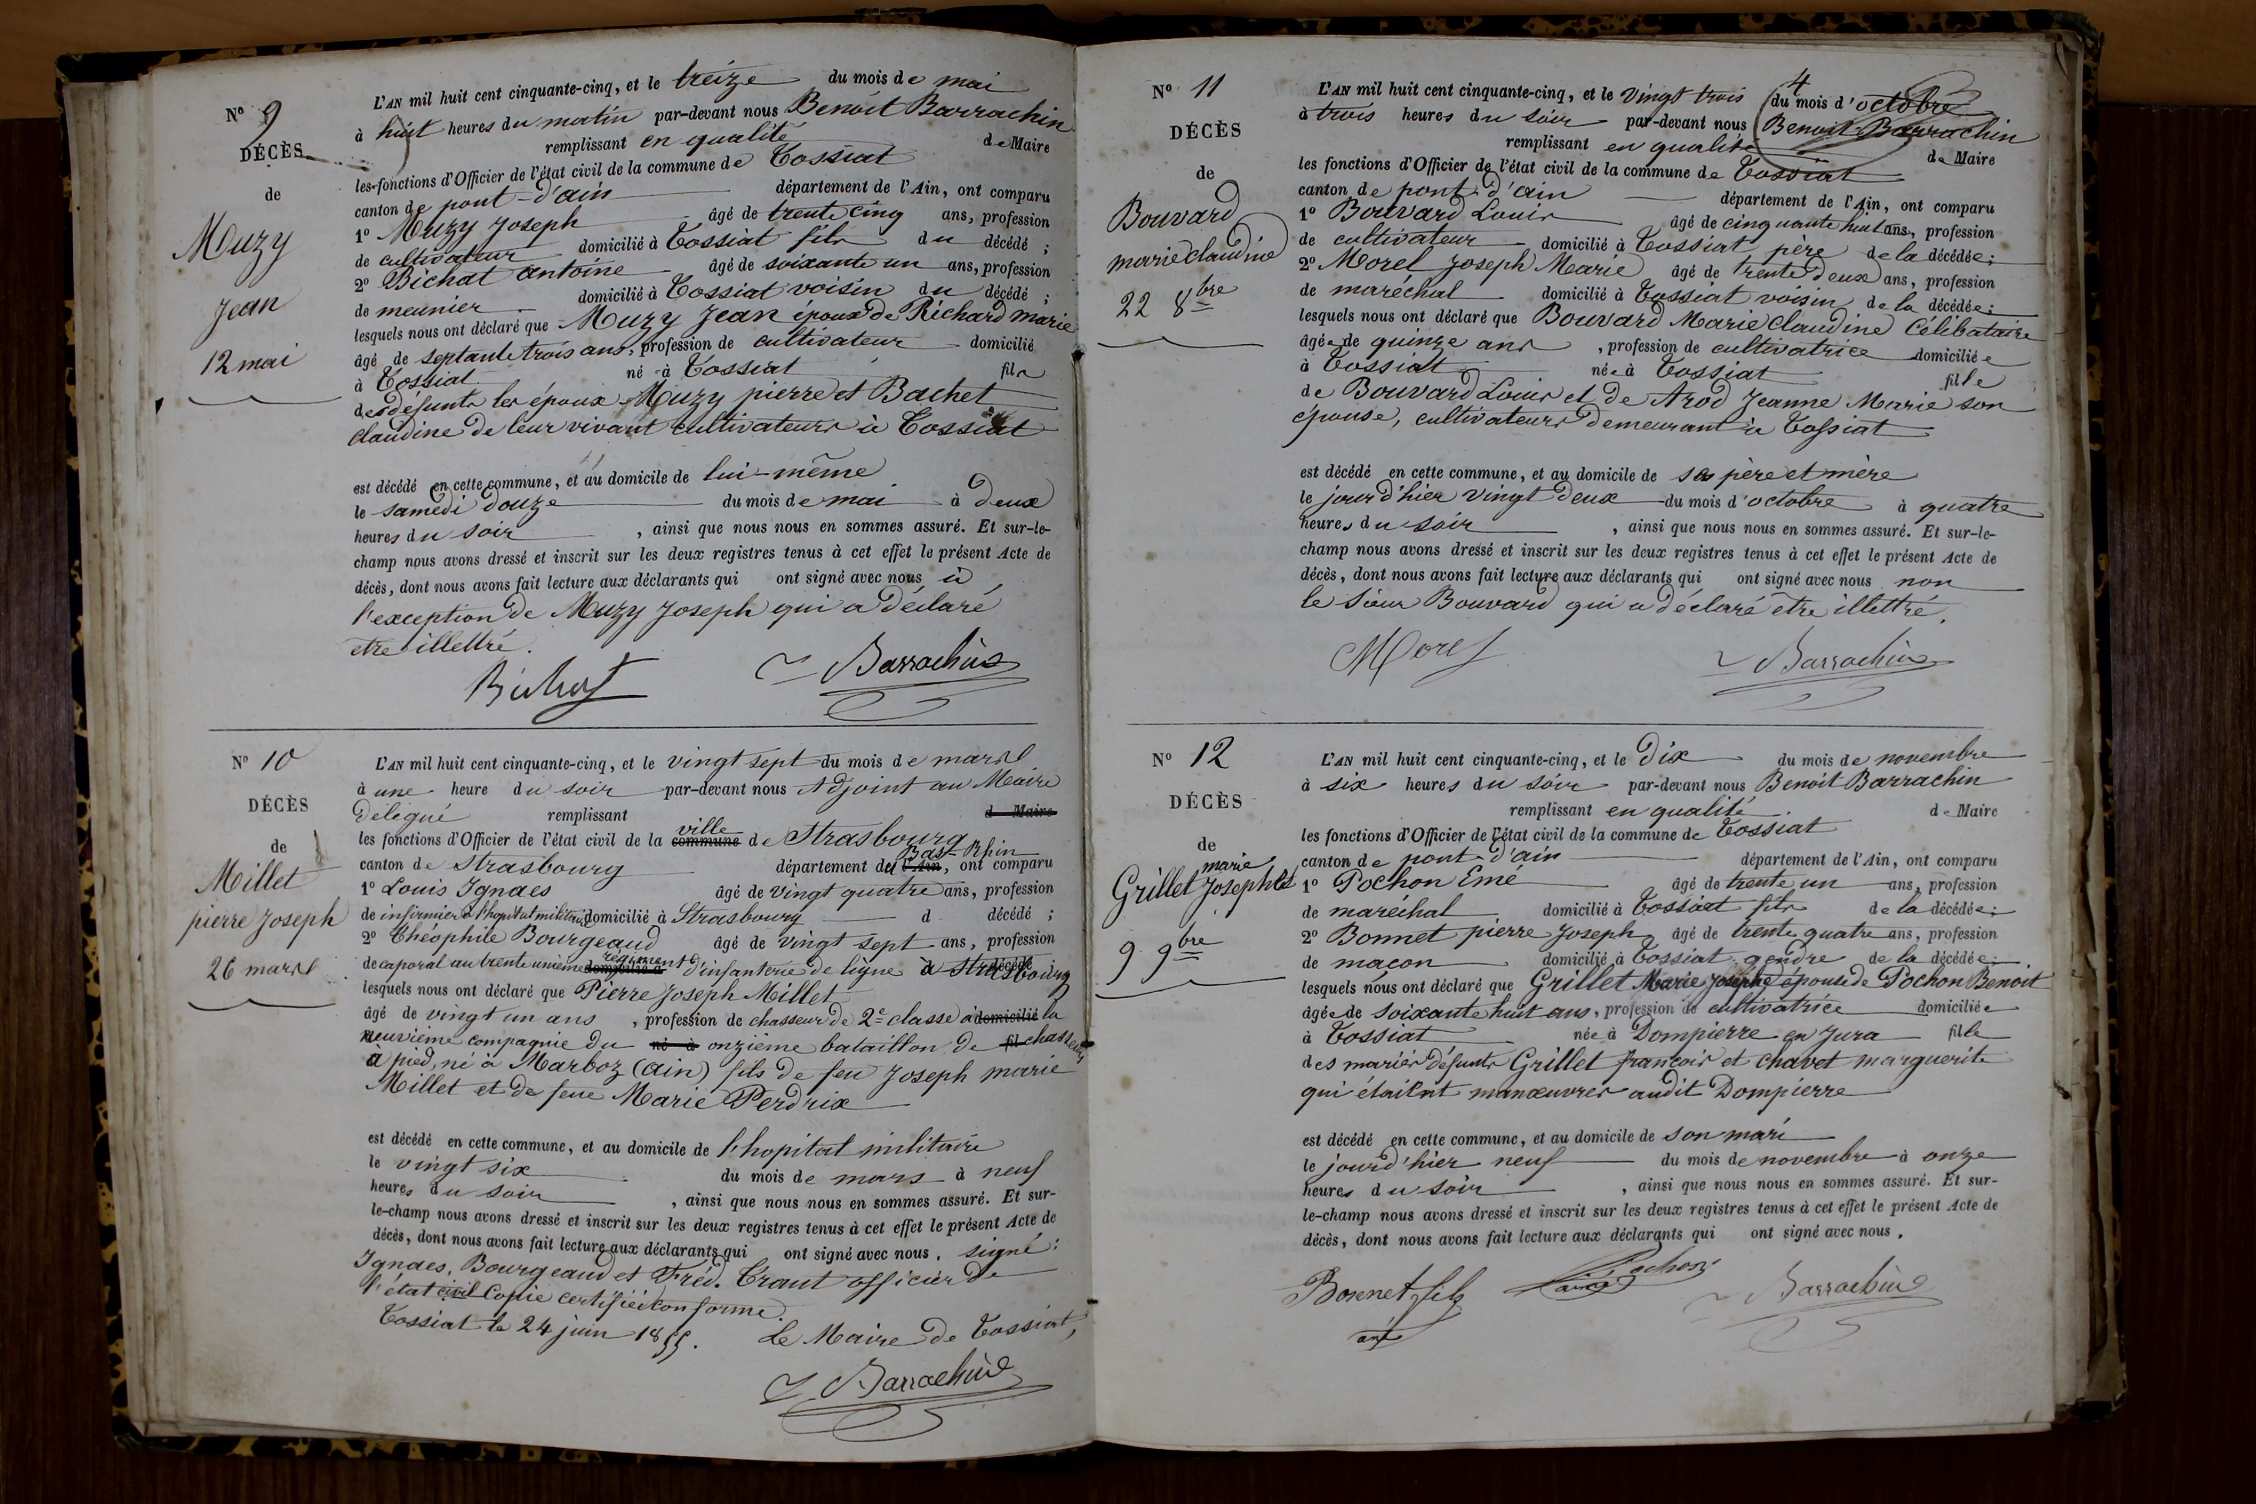 N° 9
DÉCÈS
de
Muzy
Jean
12 mai
L'AN mil huit cent cinquante-cinq, et le treize du mois de mai
à huit heures du matin par-devant nous Benoit Barrachin
remplissant en qualité de Maire
les fonctions d'Officier de l'état civil de la commune de Tossiat
canton de pont-d'ain département de l'Ain, ont comparu
1° Muzy Joseph âgé de trente cinq ans, profession
de cultivateur domicilié à Tossiat fils du décédé ;
2° Bichat antoine âgé de soixante un ans, profession
de meunier domicilié à Tossiat voisin du décédé ;
lesquels nous ont déclaré que Muzy Jean époux de Richard marie
âgé de septante trois ans, profession de cultivateur domicilié
à Tossiat né à Tossiat fils
des défunts les époux Muzy pierre et Bachet
claudine de leur vivant cultivateurs à Tossiat
est décédé en cette commune, et au domicile de lui-même
le samedi douze du mois de mai à deux
heures du soir , ainsi que nous nous en sommes assuré. Et sur-le-
champ nous avons dressé et inscrit sur les deux registres tenus à cet effet le présent Acte de
décès, dont nous avons fait lecture aux déclarants qui ont signé avec nous à
l'exception de Muzy Joseph qui a déclaré
etre illettré.
Bichat Barrachin
N° 10
DÉCÈS
de
Millet
pierre Joseph
26 mars
L'AN mil huit cent cinquante-cinq, et le vingt sept du mois de mars
à une heure du soir par-devant nous Adjoint au Maire
Délégué remplissant d Maire
les fonctions d'Officier de l'état civil de la commune ville de Strasbourg
canton de Strasbourg département du l'Ain Bas Rhin, ont comparu
1° Louis Ignaes âgé de vingt quatre ans, profession
de infirmier à l'hopital militaire domicilié à Strasbourg d décédé ;
2° Théophile Bourgeaud âgé de vingt sept ans, profession
de caporal au trente unième domicilié à regiment d'infanterie de ligne à Strasbourg décédé
lesquels nous ont déclaré que Pierre Joseph Millet
âgé de vingt un ans , profession de chasseur de 2e classe à domicilié la
neuvième compagnie du né à onzième bataillon de fil chasseurs
à pied, né à Marboz (ain) fils de feu Joseph marie
Millet et de feue Marie Perdrix
est décédé en cette commune, et au domicile de l'hopital militaire
le vingt six du mois de mars à neuf
heures du soir , ainsi que nous nous en sommes assuré. Et sur-
le-champ nous avons dressé et inscrit sur les deux registres tenus à cet effet le présent Acte de
décès, dont nous avons fait lecture aux déclarants qui ont signé avec nous. signé:
Ignaes, Bourgeaud et Fréd. Traut officier de
l'état civil Copie certifiée conforme.
Tossiat le 24 juin 1855. Le Maire de Tossiat,
Barrachin
N° 11
DÉCÈS
de
Bouvard
marie claudine
22 8bre
L'AN mil huit cent cinquante-cinq, et le vingt trois du mois d'octobre
4
à trois heures du soir par-devant nous Benoit Barrachin
remplissant en qualité de Maire
les fonctions d'Officier de l'état civil de la commune de Tossiat
canton de pont-d'ain département de l'Ain, ont comparu
1° Bouvard Louis âgé de cinquante huit ans, profession
de cultivateur domicilié à Tossiat père de la décédée ;
2° Morel Joseph Marie âgé de trente deux ans, profession
de maréchal domicilié à Tossiat voisin de la décédée ;
lesquels nous ont déclaré que Bouvard Marie Claudine Célibataire
âgée de quinze ans , profession de cultivatrice domiciliée
à Tossiat née à Tossiat fille
de Bouvard Louis et de Arod Jeanne Marie son
épouse, cultivateurs demeurant à Tossiat
est décédé en cette commune, et au domicile de ses père et mère
le jour d'hier vingt deux du mois d'octobre à quatre
heures du soir , ainsi que nous nous en sommes assuré. Et sur-le-
champ nous avons dressé et inscrit sur les deux registres tenus à cet effet le présent Acte de
décès, dont nous avons fait lecture aux déclarants qui ont signé avec nous non
le sieur Bouvard qui a déclaré etre illettré.
Morel Barrachin
N° 12
DÉCÈS
de
marie
Grillet Josephte
9 9bre
L'AN mil huit cent cinquante-cinq, et le Dix du mois de novembre
à six heures du soir par-devant nous Benoit Barrachin
remplissant en qualité de Maire
les fonctions d'Officier de l'état civil de la commune de Tossiat
canton de pont-d'ain département de l'Ain, ont comparu
1° Pochon Emé âgé de trente un ans, profession
de maréchal domicilié à Tossiat fils de la décédée ;
2° Bonnet pierre Joseph âgé de trente quatre ans, profession
de maçon domicilié à Tossiat gendre de la décédée ;
lesquels nous ont déclaré que Grillet Marie Josephte épouse de Pochon Benoit
âgée de soixante huit ans, profession de cultivatrice domiciliée
à Tossiat née à Dompierre en Jura fille
des mariés défunts Grillet françois et chavet marguerite
qui étaient manœuvres audit Dompierre
est décédé en cette commune, et au domicile de son mari
le jour d'hier neuf du mois de novembre à onze
heures du soir , ainsi que nous nous en sommes assuré. Et sur-
le-champ nous avons dressé et inscrit sur les deux registres tenus à cet effet le présent Acte de
décès, dont nous avons fait lecture aux déclarants qui ont signé avec nous.
Bonnet fils Pochon Barrachin